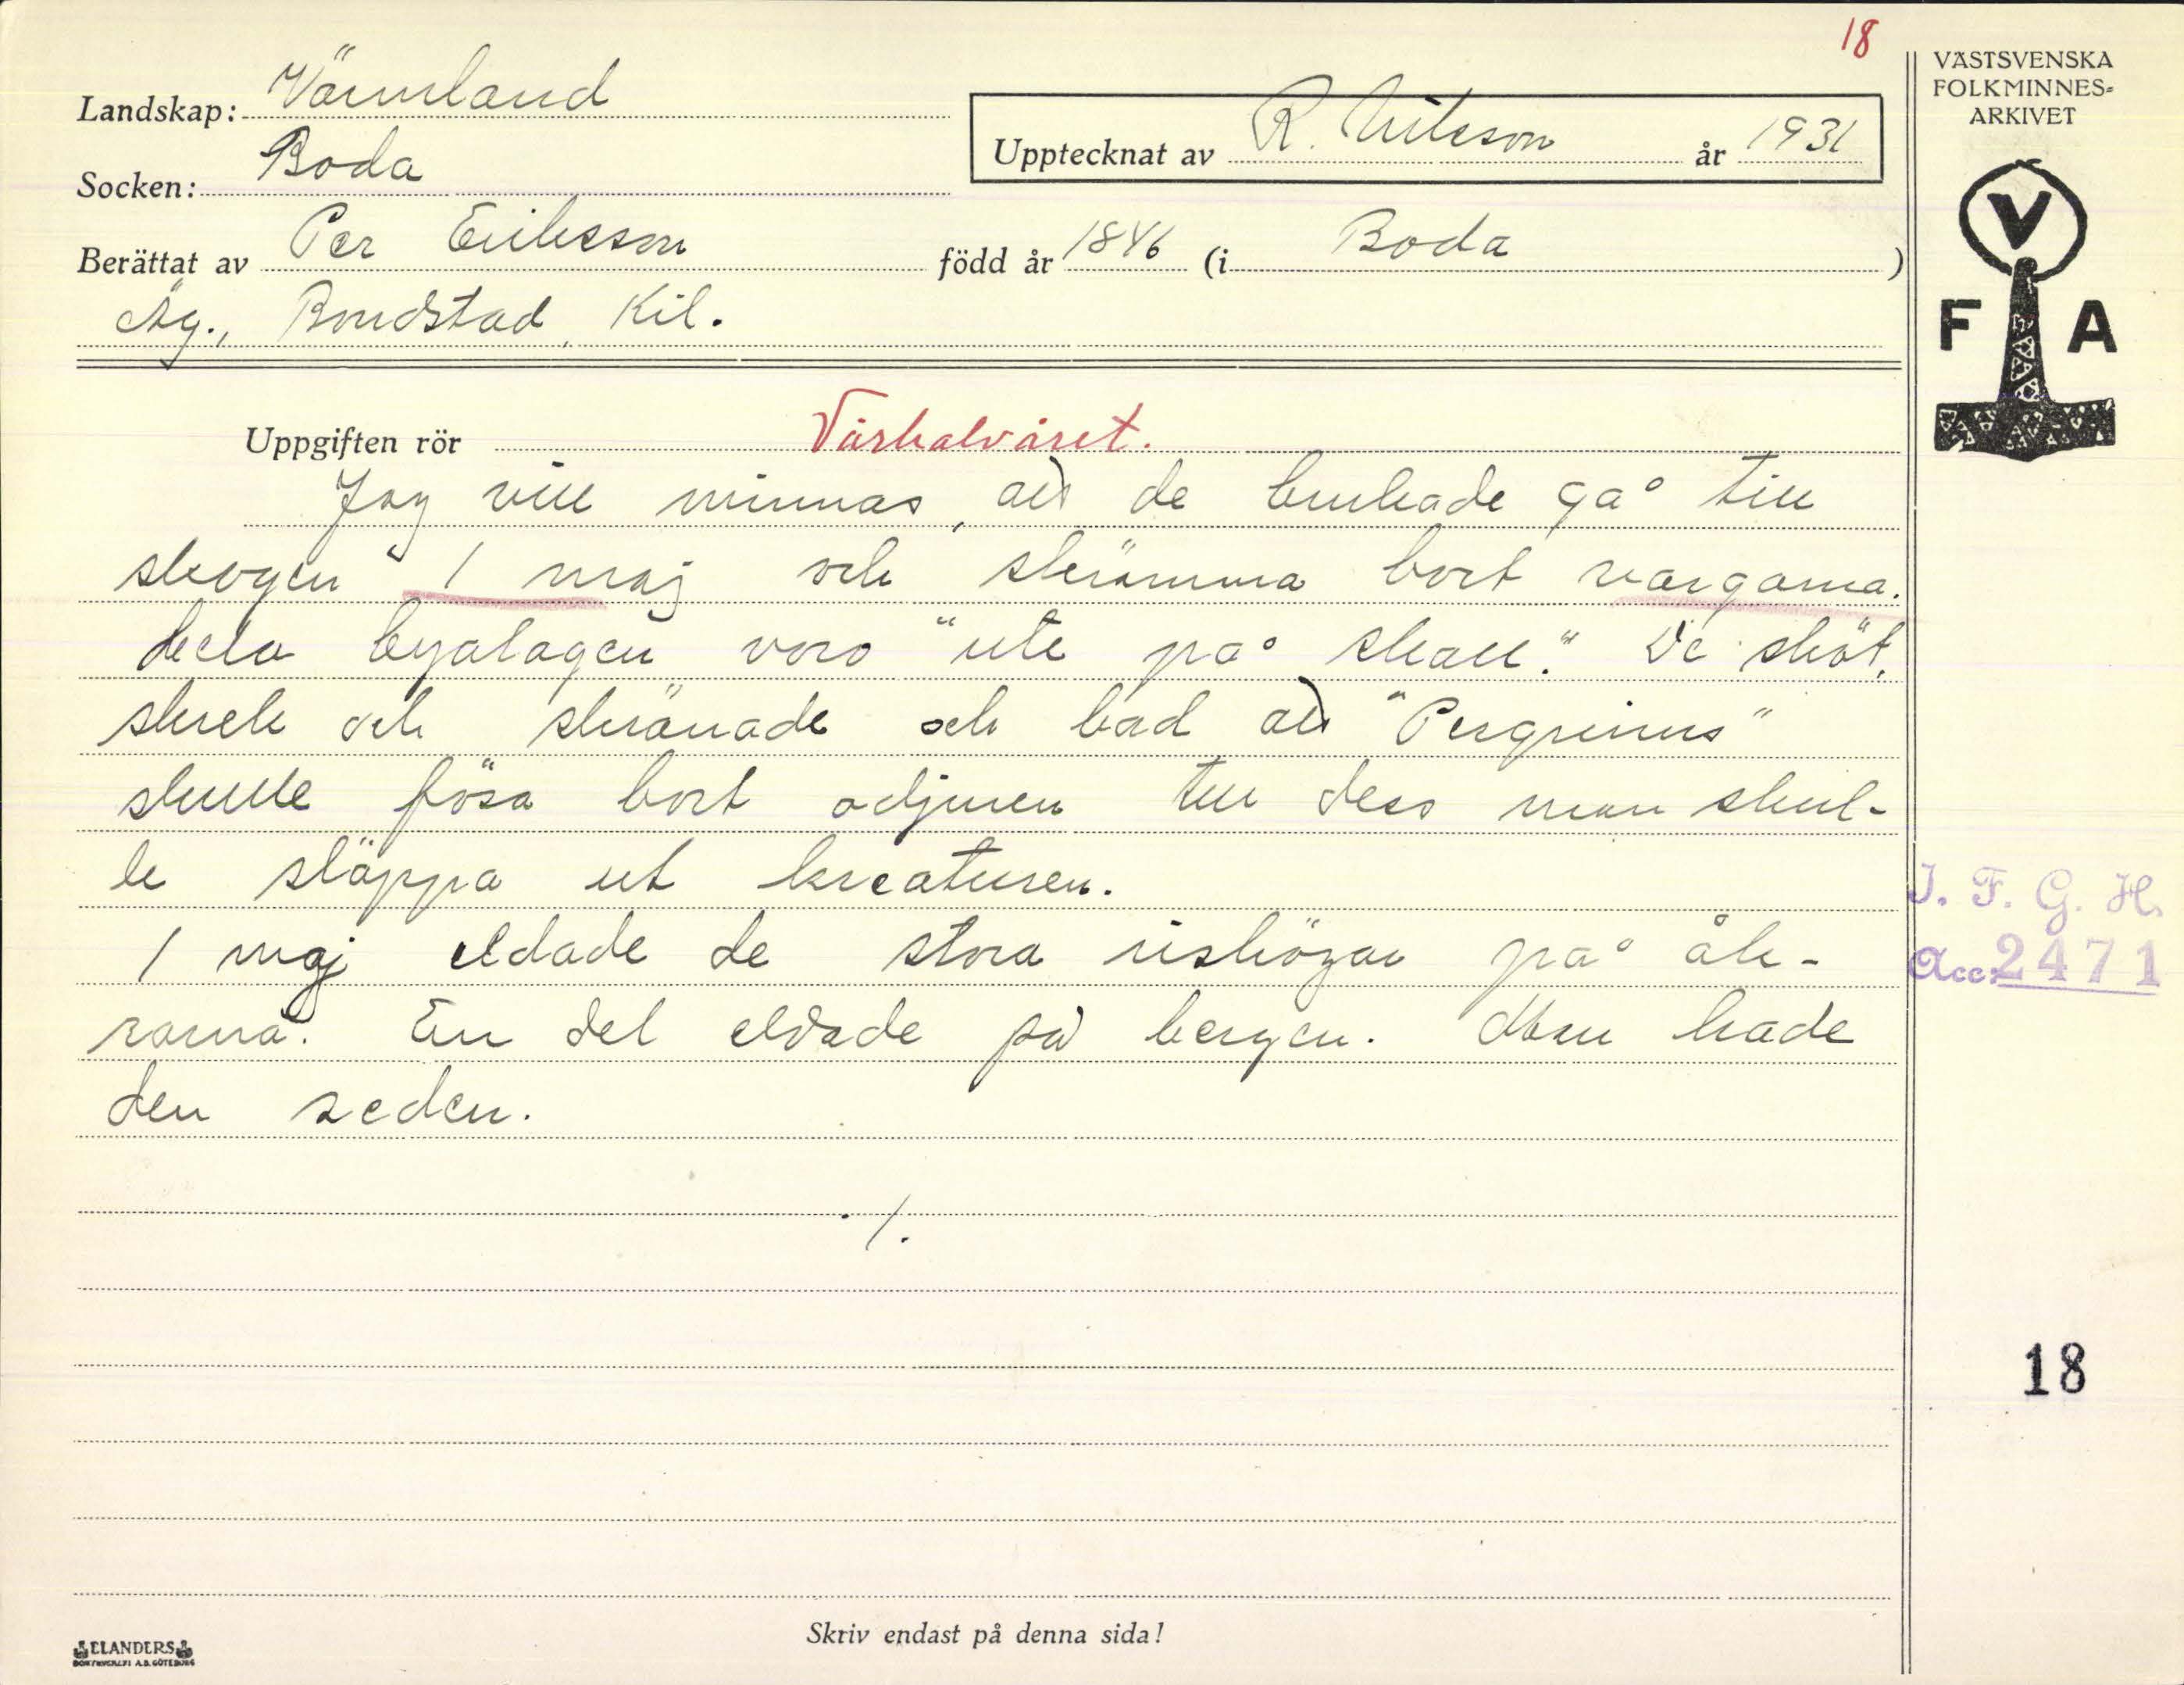 18
VÄSTSVENSKA
FOLKMINNES-
ARKIVET
Landskap: Värmland
Upptecknat av R. Nilsson år 1931
Socken: Boda
Berättat av Per Eriksson född år 1846 (i Boda)
Äg., Bondstad, Kil.
V
F A
Uppgiften rör Vårhalvåret.
Jag vill minnas, att de brukade gå till
skogen 1 maj och skrämma bort vargarna.
Hela byalagen voro "ute på skall." De sköt,
skrek och skränade och bad att "Pergrinus"
skulle fösa bort odjuren till dess man skul-
le släppa ut kreaturen.
1 maj eldade de stora rishögar på åk-
rarna. En del eldade på bergen. Man hade
den seden.
./.
I. F. G. H.
Acc. 2471
18
Skriv endast på denna sida!
ELANDERS
BOKTRYCKERI A.B. GÖTEBORG